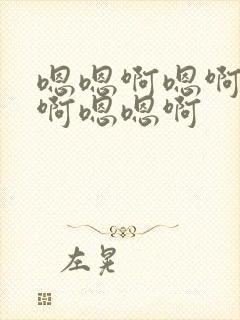 嗯嗯啊嗯啊
啊嗯嗯啊
左晃